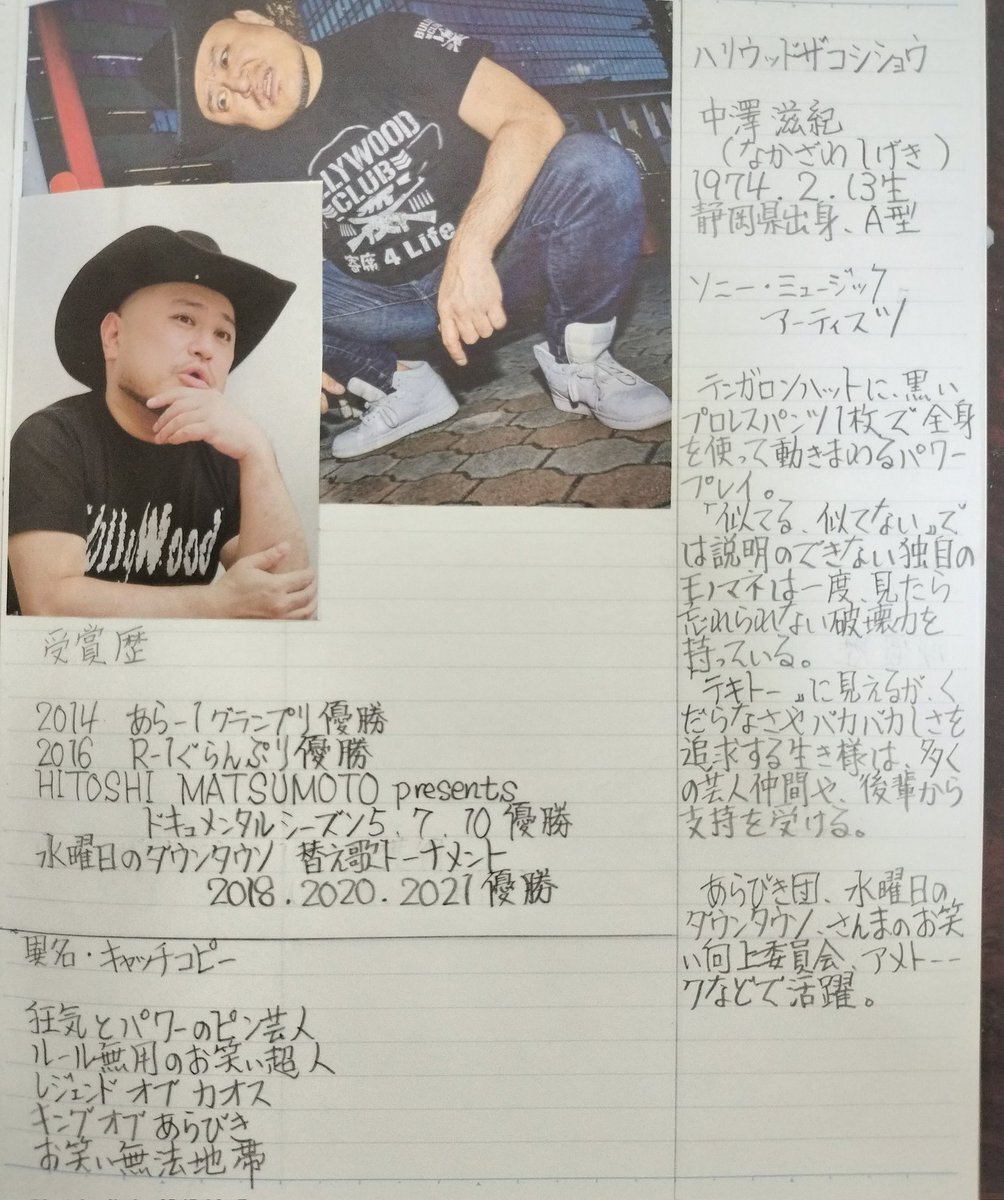 BULL
HOLLYWOOD
LLYWOOD
CLUB
寄席 4 Life
ollyWood
ハリウッドザコシショウ
中澤滋紀
(なかざわしげき)
1974.2.13生
静岡県出身、A型
ソニー・ミュージック
アーティスツ
テンガロンハットに、黒い
プロレスパンツ1枚で全身
を使って動きまわるパワー
プレイ。
『似てる、似てない』で
は説明のできない独自の
モノマネは一度、見たら
忘れられない破壊力を
持っている。
『テキトー』に見えるが、く
だらなさやバカバカしさを
追求する生き様は、多く
の芸人仲間や、後輩から
支持を受ける。
あらびき団、水曜日の
ダウンタウン、さんまのお笑
い向上委員会、アメトーー
クなどで活躍。
受賞歴
2014 あらー1グランプリ優勝
2016 R-1ぐらんぷり優勝
HITOSHI MATSUMOTO presents
ドキュメンタルシーズン5.7.10優勝
水曜日のダウンタウン 替え歌トーナメント
2018.2020.2021優勝
異名・キャッチコピー
狂気とパワーのピン芸人
ルール無用のお笑い超人
レジェンド オブ カオス
キング オブ あらびき
お笑い無法地帯